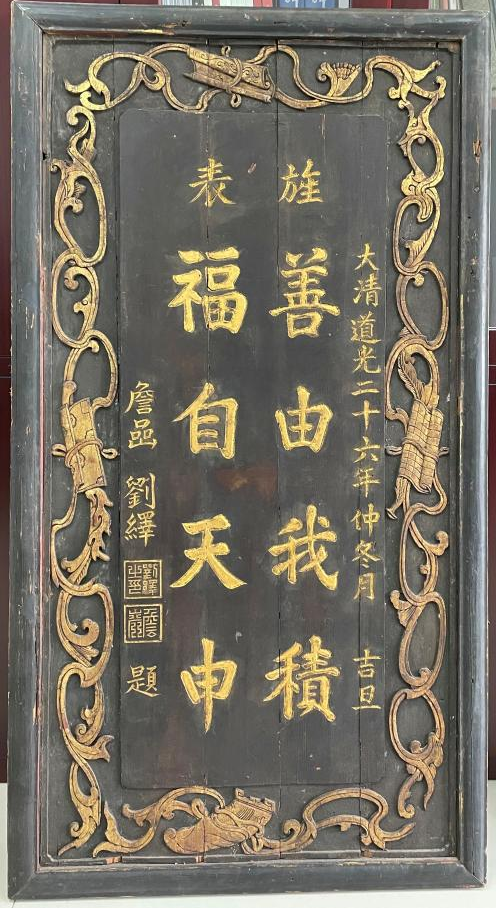 大清道光二十六年仲冬月 吉旦
旌 善由我積
表 福自天申
詹嵒 劉繹 題
劉繹之印